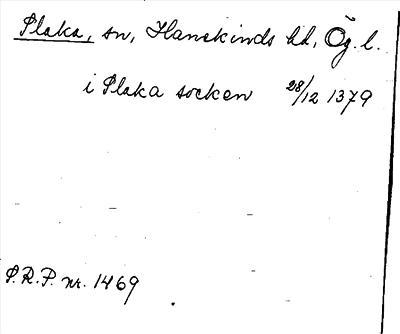 Slaka, sn, Hanekinds hd, Ög. l.
i Slaka socken 28/12 1379
S.R.P. nr. 1469